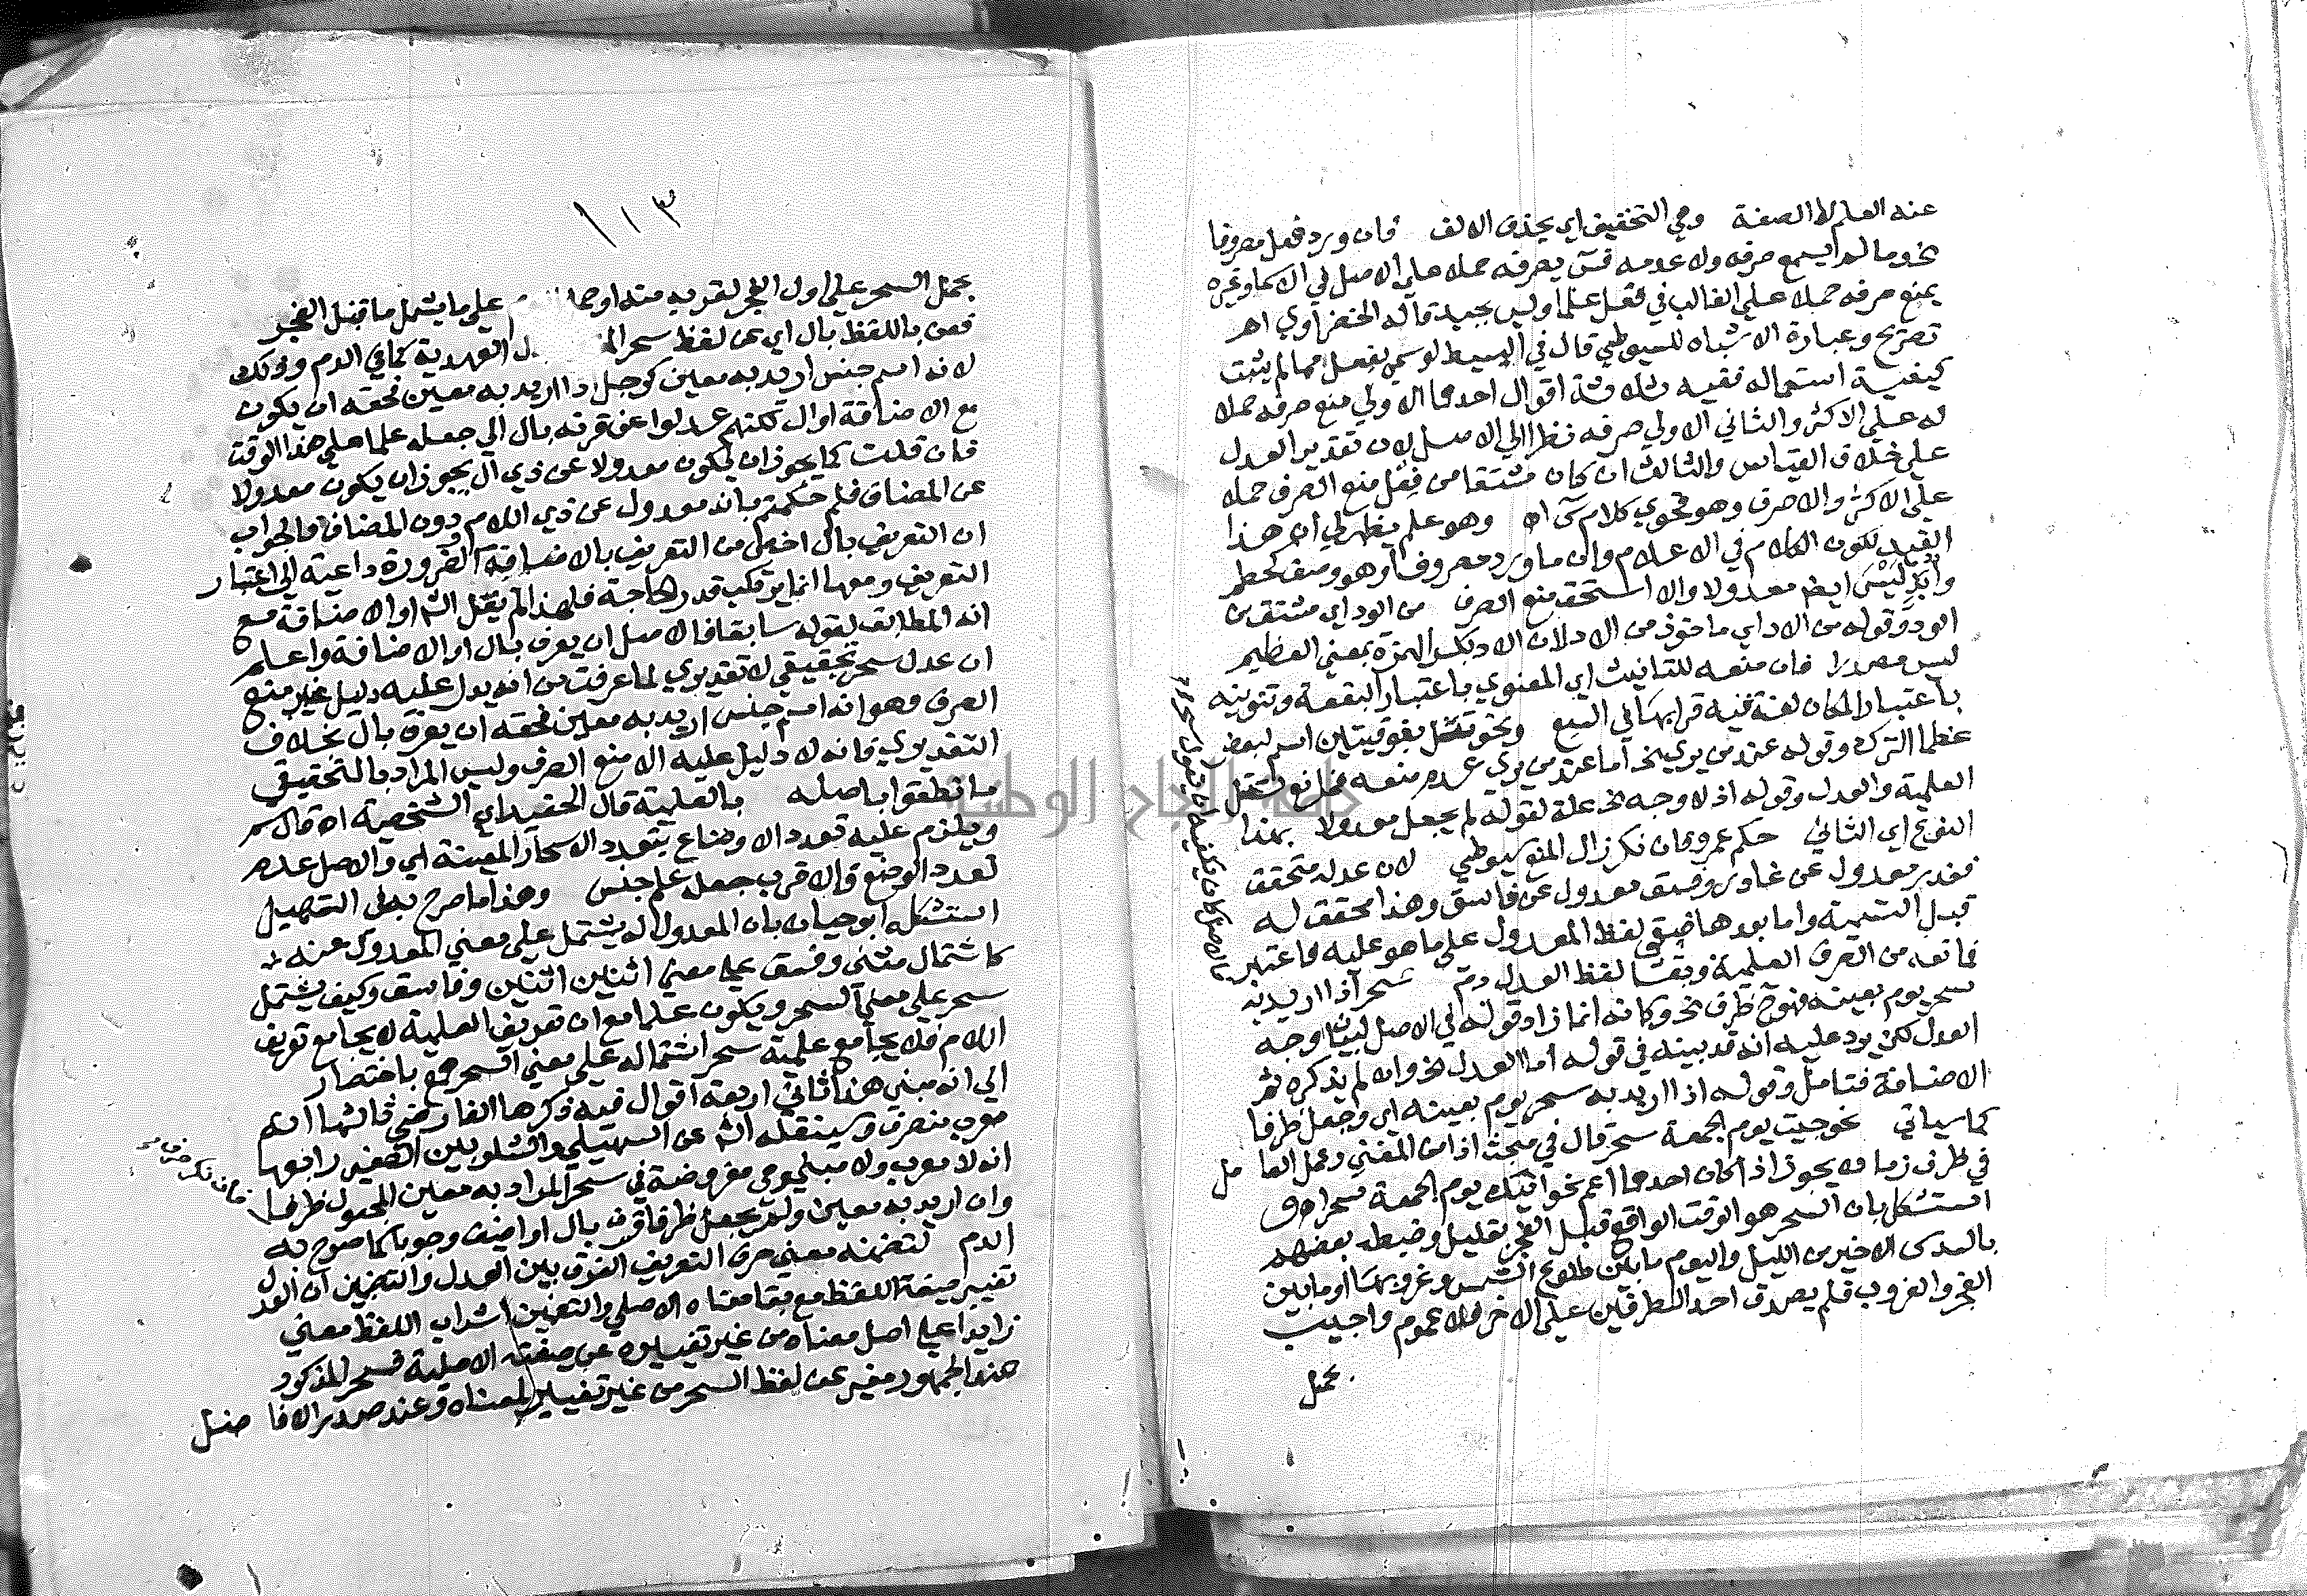 عنه العلم لا الصفة وهي التخفيف اي بحذف الالف فان ورد فعل مصروفا
نحو وما لم يسمع صرفه ولا عدمه فس يصرفه حملا على الاصل في الاسما وغيره
يمنع صرفه حملا على الغالب في فعل علما وليس بجيد قاله الخضراوي اهـ
تصريح وعبارة الاشباه للسيوطي قال في البسيط لو سمي بفعل مما لم يثبت
كيفية استعماله ففيه ثلاثة اقوال احدها الاولي منع صرفه حملا
له على الاكثر والثاني الاولي صرفه نظرا الي الاصل لان تقدير العدل
على خلاف القياس والثالث ان كان مشتقا من فعل منع الصرف حملا
على الاكثر والا صرف وهو فحوي كلام س اهـ وهو علم يظهر لي ان هذا
القيد لكون الكلام في الاعلام وان ما ورد مصروفا وهو وصف كحطم
ولبد ليس ايضا معدولا والا استحق منع الصرف من الود اي مشتق من
الود وقوله من الاد اي ماخوذ من الاد لان الاد بكسر الهمزة بمعني العظيم
ليس مصدرا فان منعه للتانيث اي المعنوي باعتبار البقعة وتنوينه
باعتبار المكان لغة فيه قرا بها في السبع ونحو تتل بفوقيتين اسم لبعض
عظما الترك وقوله عند من يري الخ اما عند من يري عدم منعه فمانع تتل
العلمية والعدل وقوله اذ لا وجه الخ علة لقوله لم يجعل معدولا بهذا
النوع اي الثاني حكم عمر وفان نكر زال المنع سيوطي لان عدله متحقق
فغدر معدول عن غادر وفسق معدول عن فاسق وهذا محقق له
قبل التسمية واما بعدها فبقي لفظ المعدول على ما هو عليه فاعتبر
فمانعه من الصرف العلمية وبقا لفظ العدل دم سحر اذا اريد به
سحر يوم بعينه فهو ظرف الخ وكانه انما زاد قوله في الاصل لبيان وجه
العدل لكن يرد عليه انه قد بينه في قوله اما العدل الخ وان لم يذكره ثم
الاضافة فتامل وقوله اذا اريد به سحر يوم بعينه اي وجعل ظرفا
كما سياتي نحو جيت يوم الجمعة سحر قال في مبحث اذا من المغني وعمل العامل
في ظرف زمان يجوز اذا كان احدهما اعم نحو اتيك يوم الجمعة سحر اهـ وق
استشكل بان السحر هو الوقت الواقع قبل الفجر بقليل وضبطه بعضهم
بالسدس الاخير من الليل واليوم ما بين طلوع الشمس وغروبها او ما بين
الفجر والغروب فلم يصدق احد الظرفين على الاخر فلا عموم واجيب
بحمل
١١٣
بحمل السحر على اول الفجر لقربه منه او على ما يشمل ما قبل الفجر
فعن باللفظ بال اي عن لفظ سحر العهدية كما في الدم وذلك
لانه اسم جنس اريد به معين كرجل اذا اريد به معين فحقه ان يكون
مع الاضافة او ال لكنهم عدلوا عن قرنه بال الي جعله علما على هذا الوقت
فان قلت كما يجوز ان يكون معدولا عن ذي ال يجوز ان يكون معدولا
عن المضاف فلم حكمتم بانه معدول عن ذي اللام دون المضاف فالجواب
ان التعريف بال اخص من التعريف بالاضافة اذ الضرورة داعية الي اعتبار
التعريف ومعها انما يرتكب قدر الحاجة فلهذا لم يقل الش او الاضافة مع
انه المطابق لقوله سابقا فالاصل ان يعرف بال او الاضافة واعلم
ان عدل سحر تحقيقي لا تقديري لما عرفت من انه يدل عليه دليل غير منع
الصرف وهو انه اسم جنس اريد به معين فحقه ان يعرف بال بخلاف
التقديري فانه لا دليل عليه الا منع الصرف وليس المراد بالتحقيقي
ما نطقوا باصله بالعلمية قال الحفيد اي الشخصية اهـ قال سم
ويلزم عليه تعدد الاوضاع بتعدد الاسحار المعينة اي والاصل عدم
تعدد الوضع والاقرب جعله علم جنس وهذا ما صرح به في التسهيل
استشكله ابو حيان بان المعدول له يشتمل على معني المعدول عنه
كاشتمال مثنى وفسق على معني اثنين اثنين وفاسق وكيف يشتمل
سحر على معني السحر ويكون علما مع ان تعريف العلمية لا يجامع تعريف
اللام فلا يجامع علمية سحر اشتماله على معني السحر همع باختصار
الي انه مبني هذا ثاني اربعة اقوال فيه ذكرها الفارضي ثالثها انه
معرب منصرف وسينقله الش عن السهيلي والشلوبين الصغير رابعها
انه لا معرب ولا مبني وهي مفروضة في سحر المراد به معين المجعول ظرفا
وان اريد به معين ولم يجعل ظرفا قرن بال او اضيف وجوبا كما صرح به
الدم لتضمنه معني حرف التعريف الفرق بين العدل والتضمين ان العدل
تغيير صيغة اللفظ مع بقا معناه الاصلي والتضمين اشراب اللفظ معني
زايدا على اصل معناه من غير تغييره عن صفته الاصلية فسحر المذكور
عند الجمهور مغير عن لفظ السحر من غير تغيير لمعناه وعند صدر الافاضل